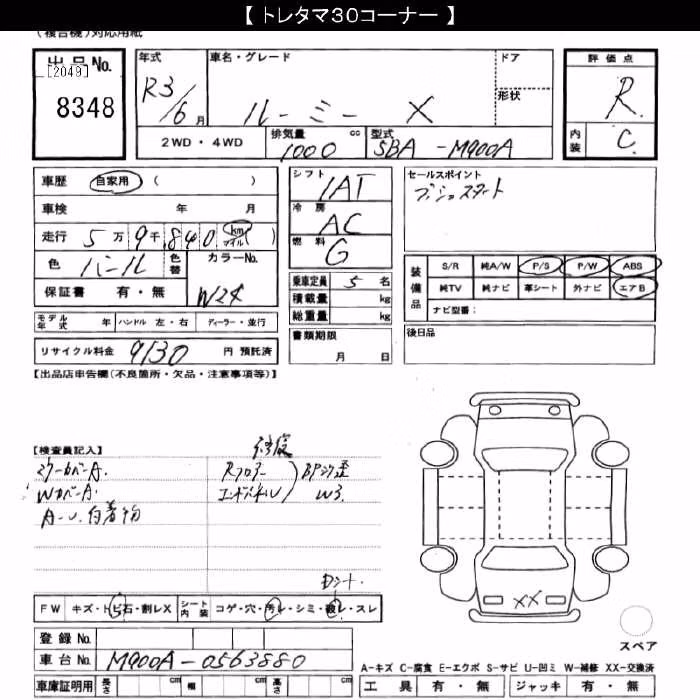 【 トレタマ30コーナー 】
(複合機)対応用紙
出品No. [2049] 8348
年式 R3/6月
車名・グレード ルーミー X
ドア
形状
評価点 R
内装 C
2WD・4WD
排気量 1000 cc
型式 5BA-M900A
車歴 自家用 ( )
車検 年 月
走行 5万9千840 km マイル ( )
色 パール 色替
カラーNo. W24
保証書 有・無
シフト IAT
冷房 AC
燃料 G
乗車定員 5名
積載量 kg
総重量 kg
書類期限 月 日
セールスポイント
プッシュスタート
装備品 S/R 純A/W P/S P/W ABS
純TV 純ナビ 革シート 外ナビ エアB
ナビ型番:
後日品
モデル年式 年 ハンドル 左・右 ディーラー・並行
リサイクル料金 9130 円 預託済
【出品店申告欄(不良箇所・欠品・注意事項等)】
【検査員記入】
修復
Rフロアー
エンドパネル
W3
WカバーA.
A-U.付着物
FW キズ・トビ石・割レX シート内装 コゲ・穴・汚レ・シミ・破レ・スレ
登録No.
車台No. M900A-0563880
車庫証明用 長さ cm 幅 cm 高さ cm
XX
スペア
A-キズ C-腐食 E-エクボ S-サビ U-凹ミ W-補修 XX-交換済
工具 有・無 ジャッキ 有・無